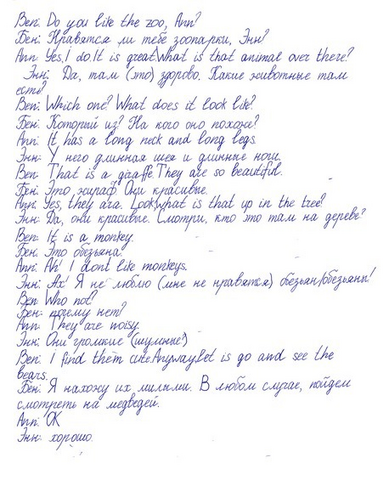 Ben: Do you like the zoo, Ann?
Бен: Нравятся ли тебе зоопарки, Энн?
Ann: Yes, I do. It is great. What is that animal over there?
Энн: Да, там (это) здорово. Какие животные там
есть?
Ben: Which one? What does it look like?
Бен: Который из? На кого оно похоже?
Ann: It has a long neck and long legs.
Энн: У него длинная шея и длинные ноги.
Ben: That is a giraffe. They are so beautiful.
Бен: Это жираф. Они красивые.
Ann: Yes, they are. Look, what is that up in the tree?
Энн: Да, они красивые. Смотри, кто это там на дереве?
Ben: It is a monkey.
Бен: Это обезьяна.
Ann: Ah! I dont like monkeys.
Энн: Ах! Я не люблю (мне не нравятся) обезьян/обезьяны!
Ben: Who not?
Бен: почему нет?
Ann: They are noisy.
Энн: Они громкие (шумные!)
Ben: I find them cute. Anyway let is go and see the
bears.
Бен: Я нахожу их милыми. В любом случае, пойдем
смотреть на медведей.
Ann: OK
Энн: хорошо.